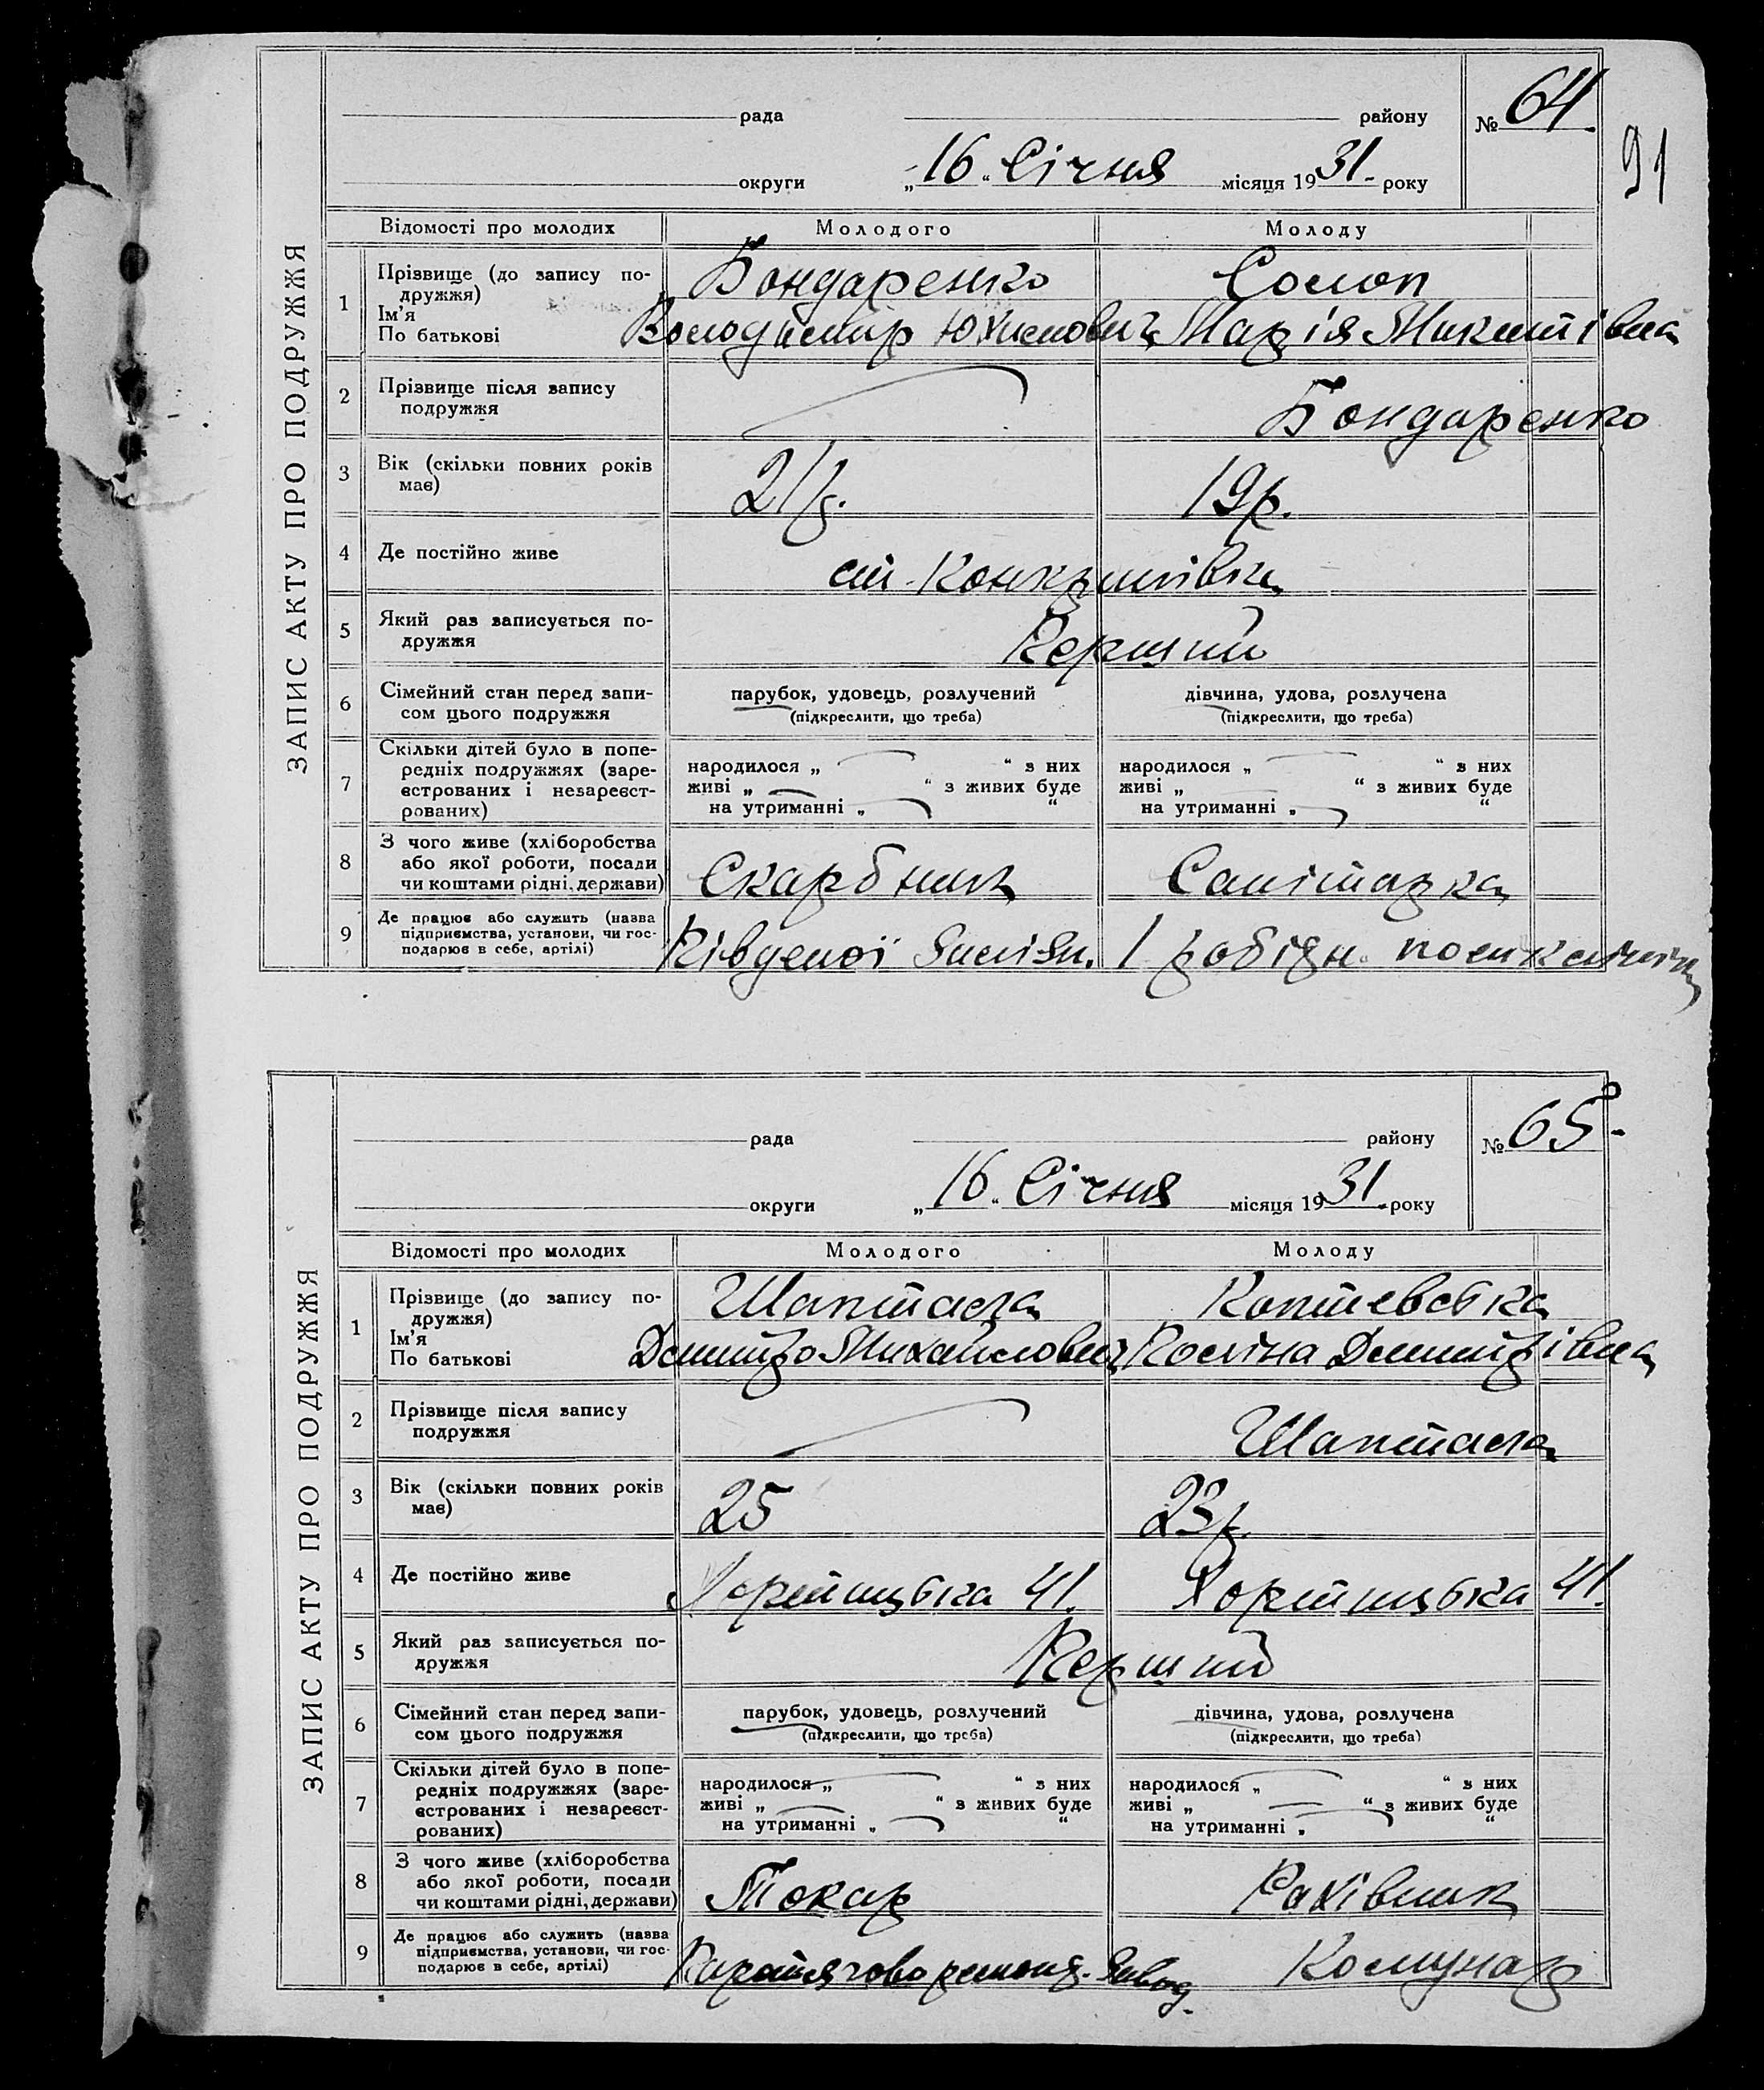 рада району № 64
91
округи „16“ Січня місяця 1931 року
ЗАПИС АКТУ ПРО ПОДРУЖЖЯ
Відомості про молодих Молодого Молоду
1 Прізвище (до запису по-
дружжя) Бондаренко Солоп
Ім'я
По батькові Володимир Юхимович Марія Микитівна
2 Прізвище після запису
подружжя Бондаренко
3 Вік (скільки повних років
має) 21 р. 19 р.
4 Де постійно живе
5 Який раз записується по-
дружжя Перший
6 Сімейний стан перед запи-
сом цього подружжя
парубок, удовець, розлучений
(підкреслити, що треба)
дівчина, удова, розлучена
(підкреслити, що треба)
7 Скільки дітей було в попе-
редніх подружжях (заре-
єстрованих і незареєст-
рованих)
народилося „ “ з них
живі „ “ з живих буде
на утриманні „ “
народилося „ “ з них
живі „ “ з живих буде
на утриманні „ “
8 З чого живе (хліборобства
або якої роботи, посади
чи коштами рідні, держави) Скарбник Санітарка
9 Де працює або служить (назва
підприємства, установи, чи гос-
подарює в себе, артілі) Південої 1 робідн. поликлініка
рада району № 65
округи „16“ Січня місяця 1931 року
ЗАПИС АКТУ ПРО ПОДРУЖЖЯ
Відомості про молодих Молодого Молоду
1 Прізвище (до запису по-
дружжя) Шаптала Коптевська
Ім'я
По батькові Дмитро Михайлович Поліна Дмитрівна
2 Прізвище після запису
подружжя Шаптала
3 Вік (скільки повних років
має) 25 23 р.
4 Де постійно живе Хортицька 41. Хортицька 41.
5 Який раз записується по-
дружжя Перший
6 Сімейний стан перед запи-
сом цього подружжя
парубок, удовець, розлучений
(підкреслити, що треба)
дівчина, удова, розлучена
(підкреслити, що треба)
7 Скільки дітей було в попе-
редніх подружжях (заре-
єстрованих і незареєст-
рованих)
народилося „ “ з них
живі „ “ з живих буде
на утриманні „ “
народилося „ “ з них
живі „ “ з живих буде
на утриманні „ “
8 З чого живе (хліборобства
або якої роботи, посади
чи коштами рідні, держави) Токар Рахівник
9 Де працює або служить (назва
підприємства, установи, чи гос-
подарює в себе, артілі) Паротяговоремонд. Завод. Комунар